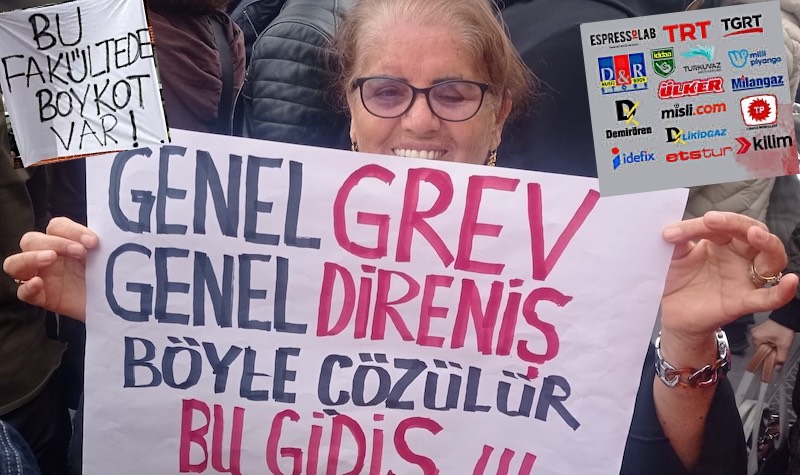 BU
FAKÜLTEDE
BOYKOT
VAR!
GENEL GREV
GENEL DİRENİŞ
BÖYLE ÇÖZÜLÜR
BU GİDİŞ !!!
ESPRESSOLAB TRT TGRT
D&R iddaa TURKUVAZ milli piyango
ÜLKER Milangaz
Demirören misli.com TP
LİKİDGAZ
idefix etstur kilim